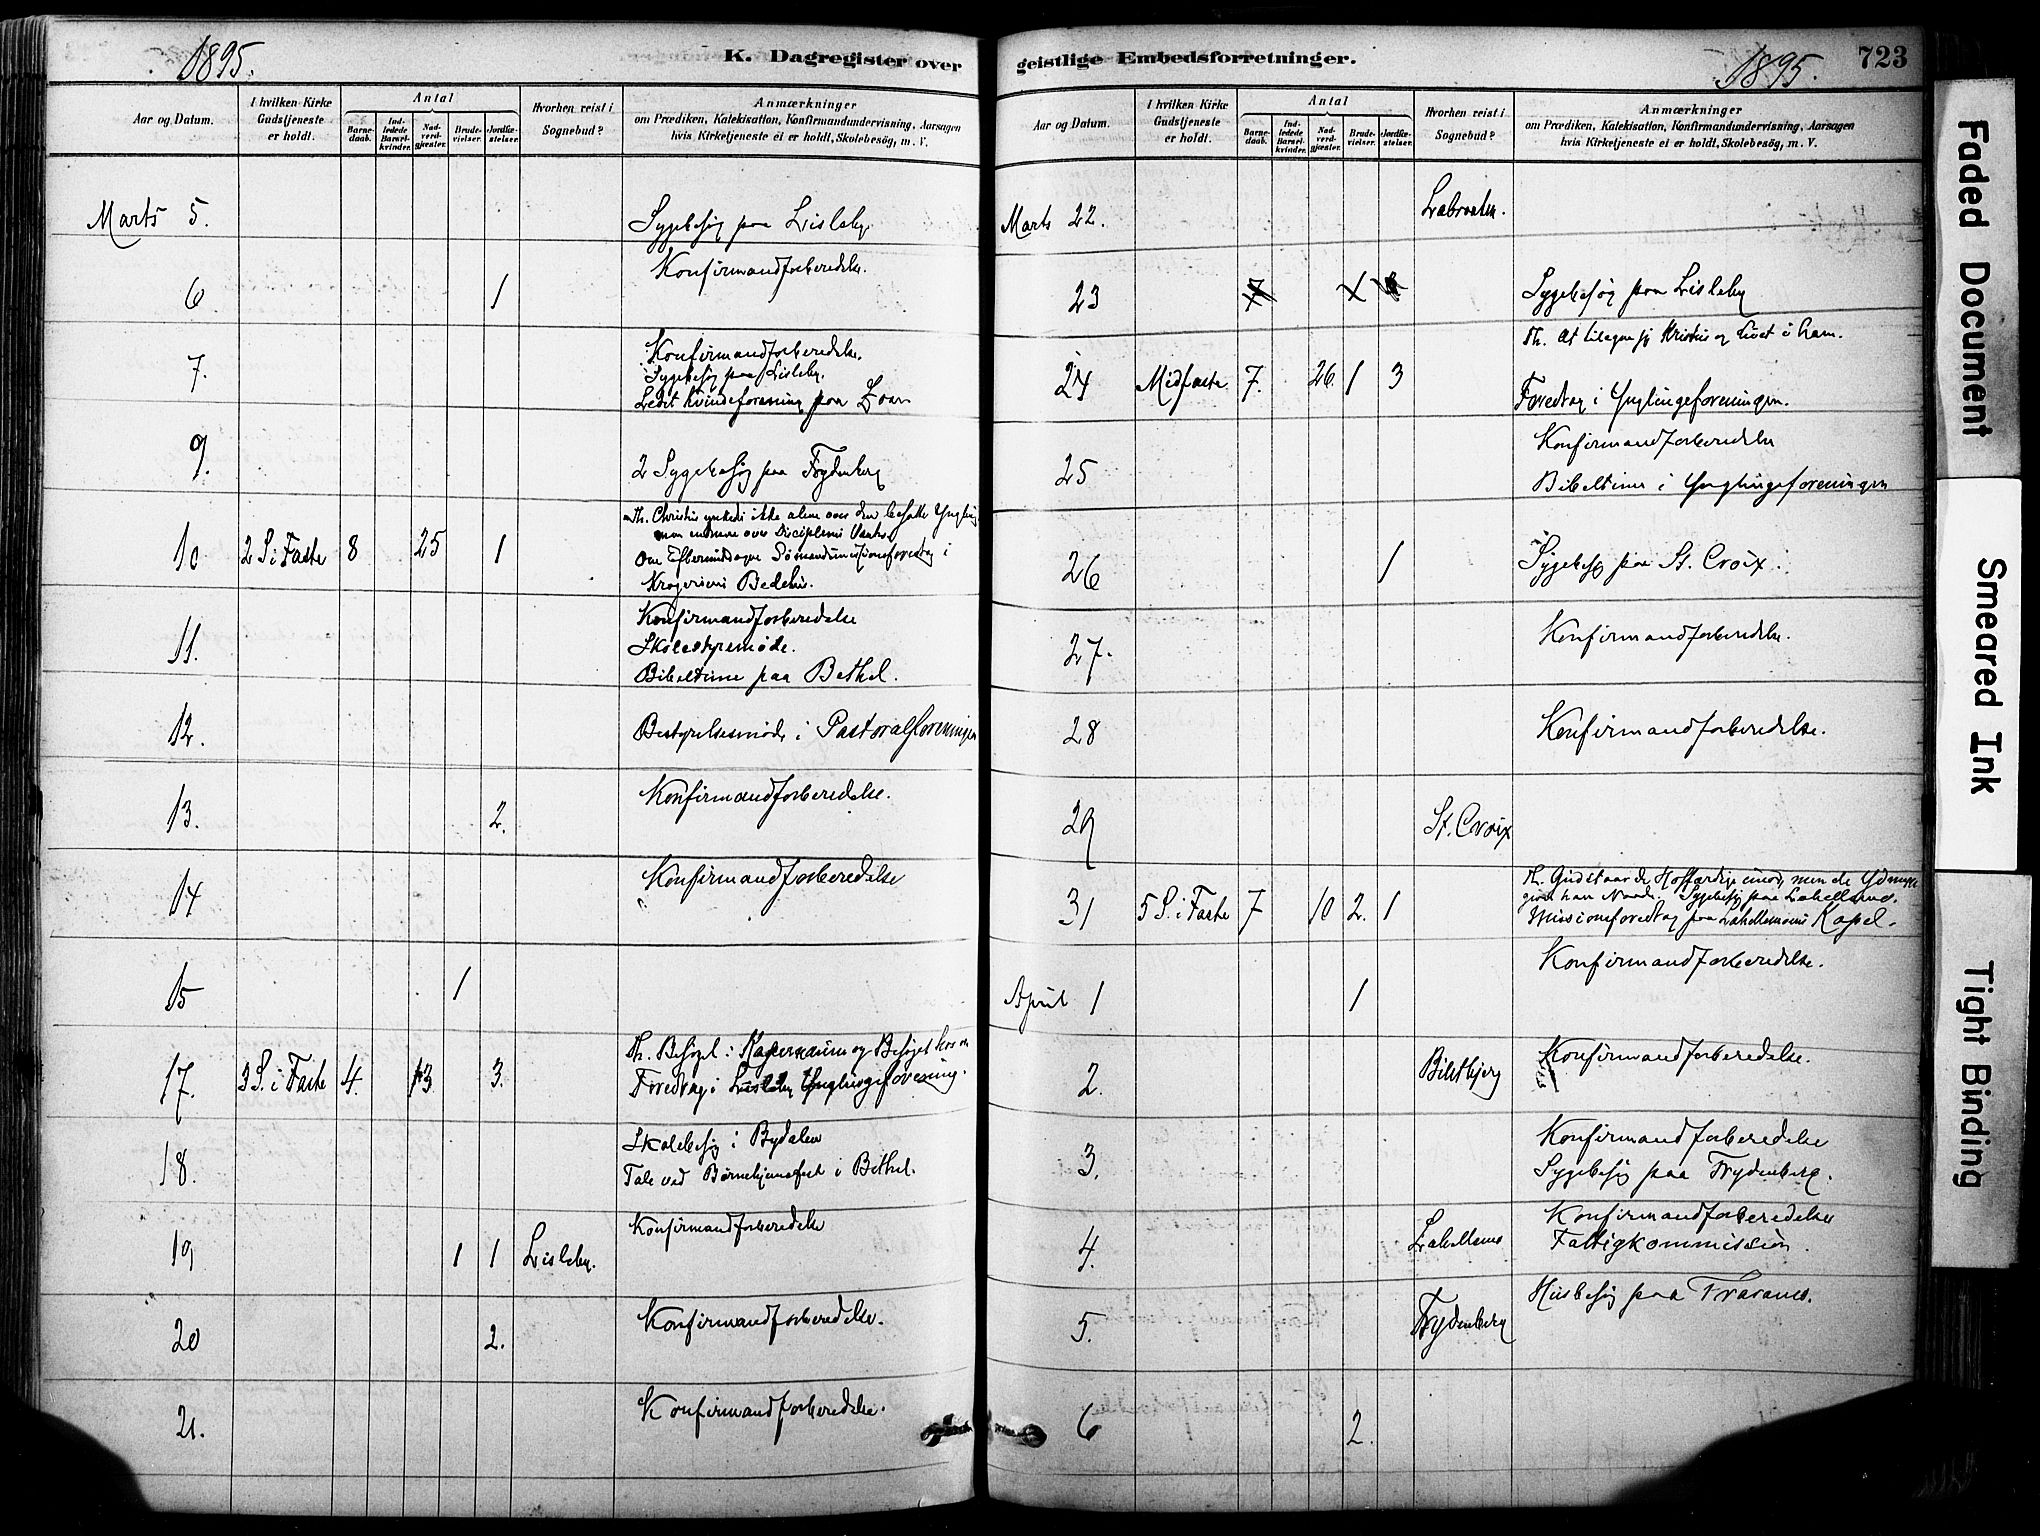 1895.
K. Dagregister over
Aar og Datum.
I hvilken Kirke Gudstjeneste er holdt.
Antal
Barnedaab.
Indledede Barselkvinder.
Nadverdgjæster.
Brudevielser.
Jordfæstelser.
Hvorhen reist i Sognebud?
Anmærkninger
om Prædiken, Katekisation, Konfirmandundervisning, Aarsagen
hvis Kirketjeneste ei er holdt, Skolebesög, m. V.
Marts 5. Sygebesøg paa Lisleby
6 1 Konfirmandforberedelse.
7. Konfirmandforberedelse.
Sygebesøg paa Lisleby.
Ledet Kvindeforening paa Zoar
9. 2 Sygebesøg paa Frydenberg
10 2 S. i Faste 8 25 1 Th. Christus ynkedes ikke alene over den besatte Yngling
men endnu mere over Disciplenes
Om Eftermiddagen Sømandsmissionsforedrag i
Bedehus.
11. Konfirmandforberedelse
Skolestyremøde.
Bibeltime paa Bethel.
12. Bestyrelsesmøde i Pastoralforeningen
13. 2. Konfirmandforberedelse.
14 Konfirmandforberedelse
15 1
17. 3 S. i Faste 4. 13 3. Th. Besøget i Kapernaum og Besøget hos
Foredrag i Lisleby Ynglingeforening.
18. Skolebesøg i Bydalen
Tale ved Børnehjemsfest i Bethel.
19 1 1 Lisleby. Konfirmandforberedelse
20 2. Konfirmandforberedelse.
21. Konfirmandforberedelse.
geistlige Embedsforretninger.
1895.
723
Aar og Datum.
I hvilken Kirke Gudstjeneste er holdt.
Antal
Barnedaab.
Indledede Barselkvinder.
Nadverdgjæster.
Brudevielser.
Jordfæstelser.
Hvorhen reist i Sognebud?
Anmærkninger
om Prædiken, Katekisation, Konfirmandundervisning, Aarsagen
hvis Kirketjeneste ei er holdt, Skolebesög, m. V.
Marts 22. Labraaten.
23 7 Sygebesøg paa Lisleby
24 Midfaste 7. 26 1 3 Th. At tilegne sig Kristus og Livet i ham.
Foredrag i Ynglingeforeningen.
25 Konfirmandforberedelse
Bibeltime i Ynglingeforeningen
26 1 Sygebesøg paa St. Croix.
27. Konfirmandforberedelse.
28 Konfirmandforberedelse.
29 St. Croix
31 5 S. i Faste 7 10 2. 1 Th. Gud staar de Hoffærdige imod, men de Ydmyge
giver han Naade. Sygebesøg paa
Missionsforedrag paa Kapel.
April 1 1 Konfirmandforberedelse.
2. Konfirmandforberedelse.
3. Konfirmandforberedelse
Sygebesøg paa Frydenberg.
4. Konfirmandforberedelse
Fattigkommission.
5. Frydenberg Husbesøg paa
6 2.
Faded Document
Smeared Ink
Tight Binding